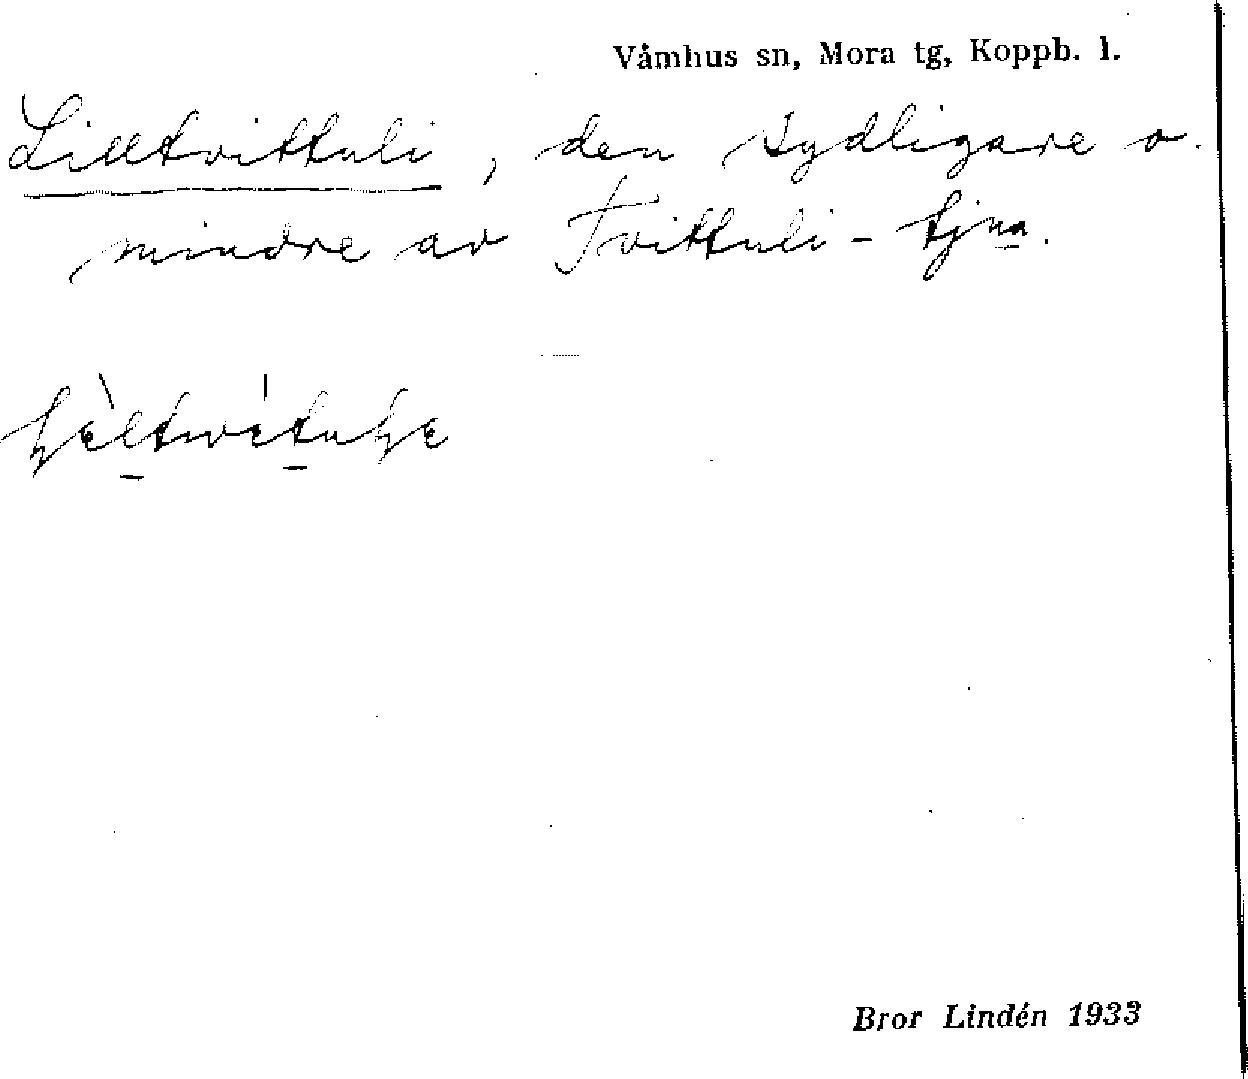 Våmhus sn, Mora tg, Koppb. l.
Lilltvittuli, den sydligare o.
mindre av Tvittuli-tjna.
Bror Lindén 1933